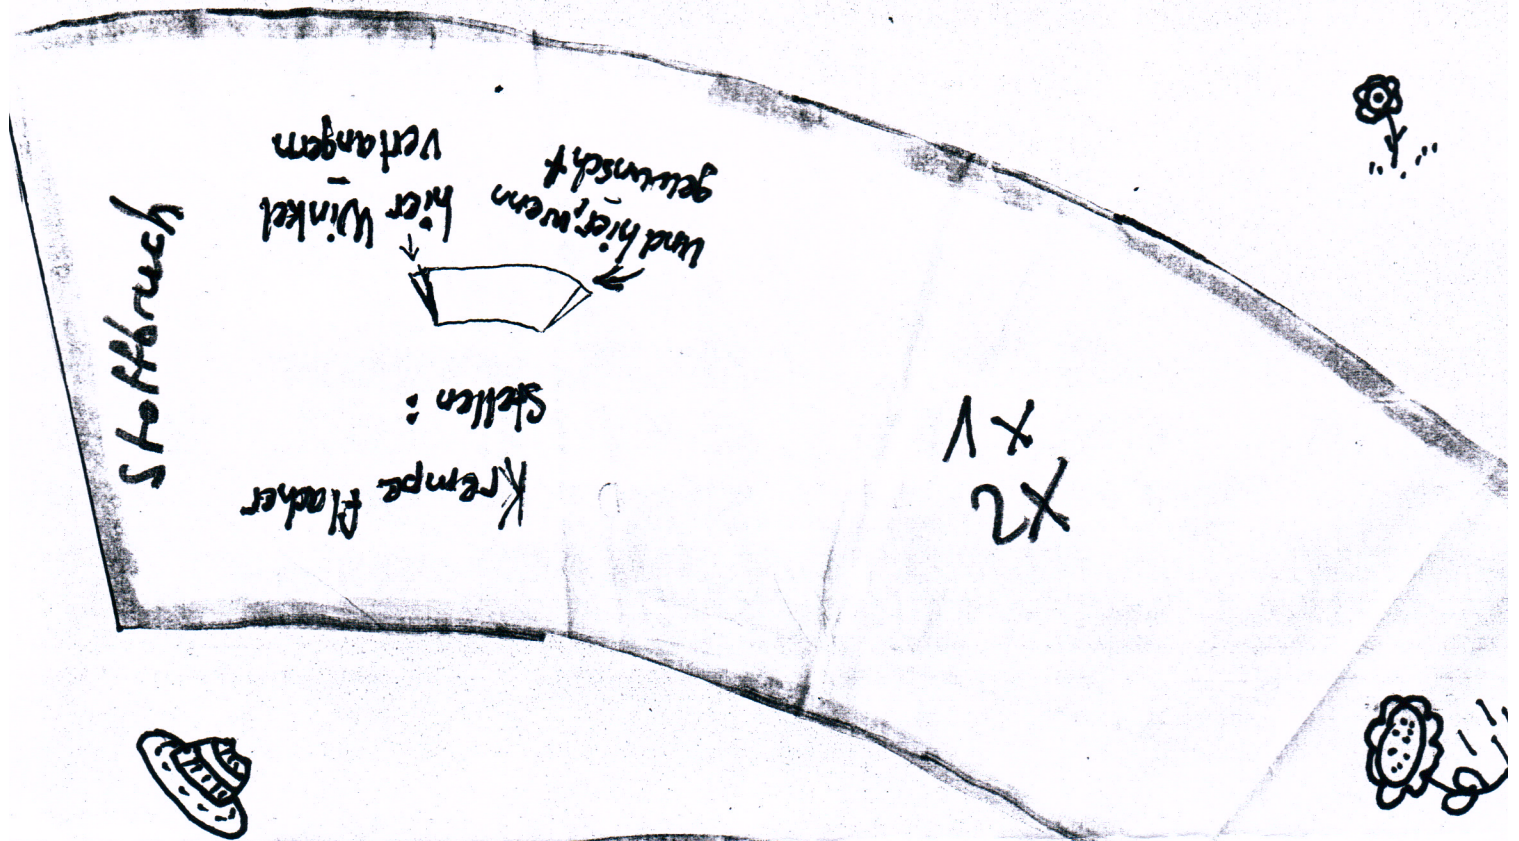 Stoffbruch
Krempe flacher
stellen:
hier Winkel
verlangern
und hier, wenn
gewünscht
1x
2x